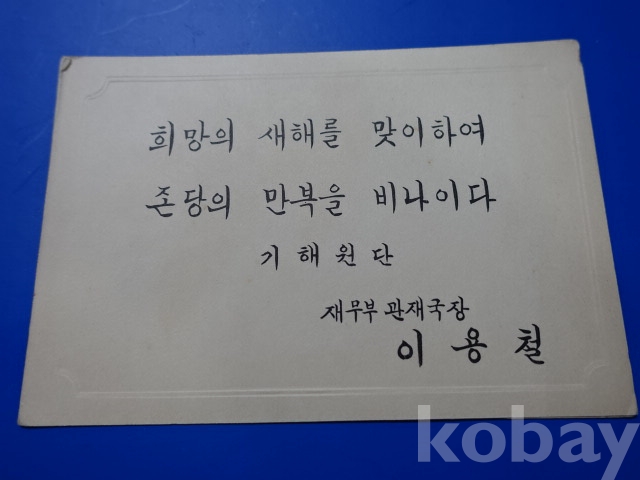 희망의 새해를 맞이하여
존당의 만복을 비나이다
기해원단
재무부 관재국장
이용철
kobay